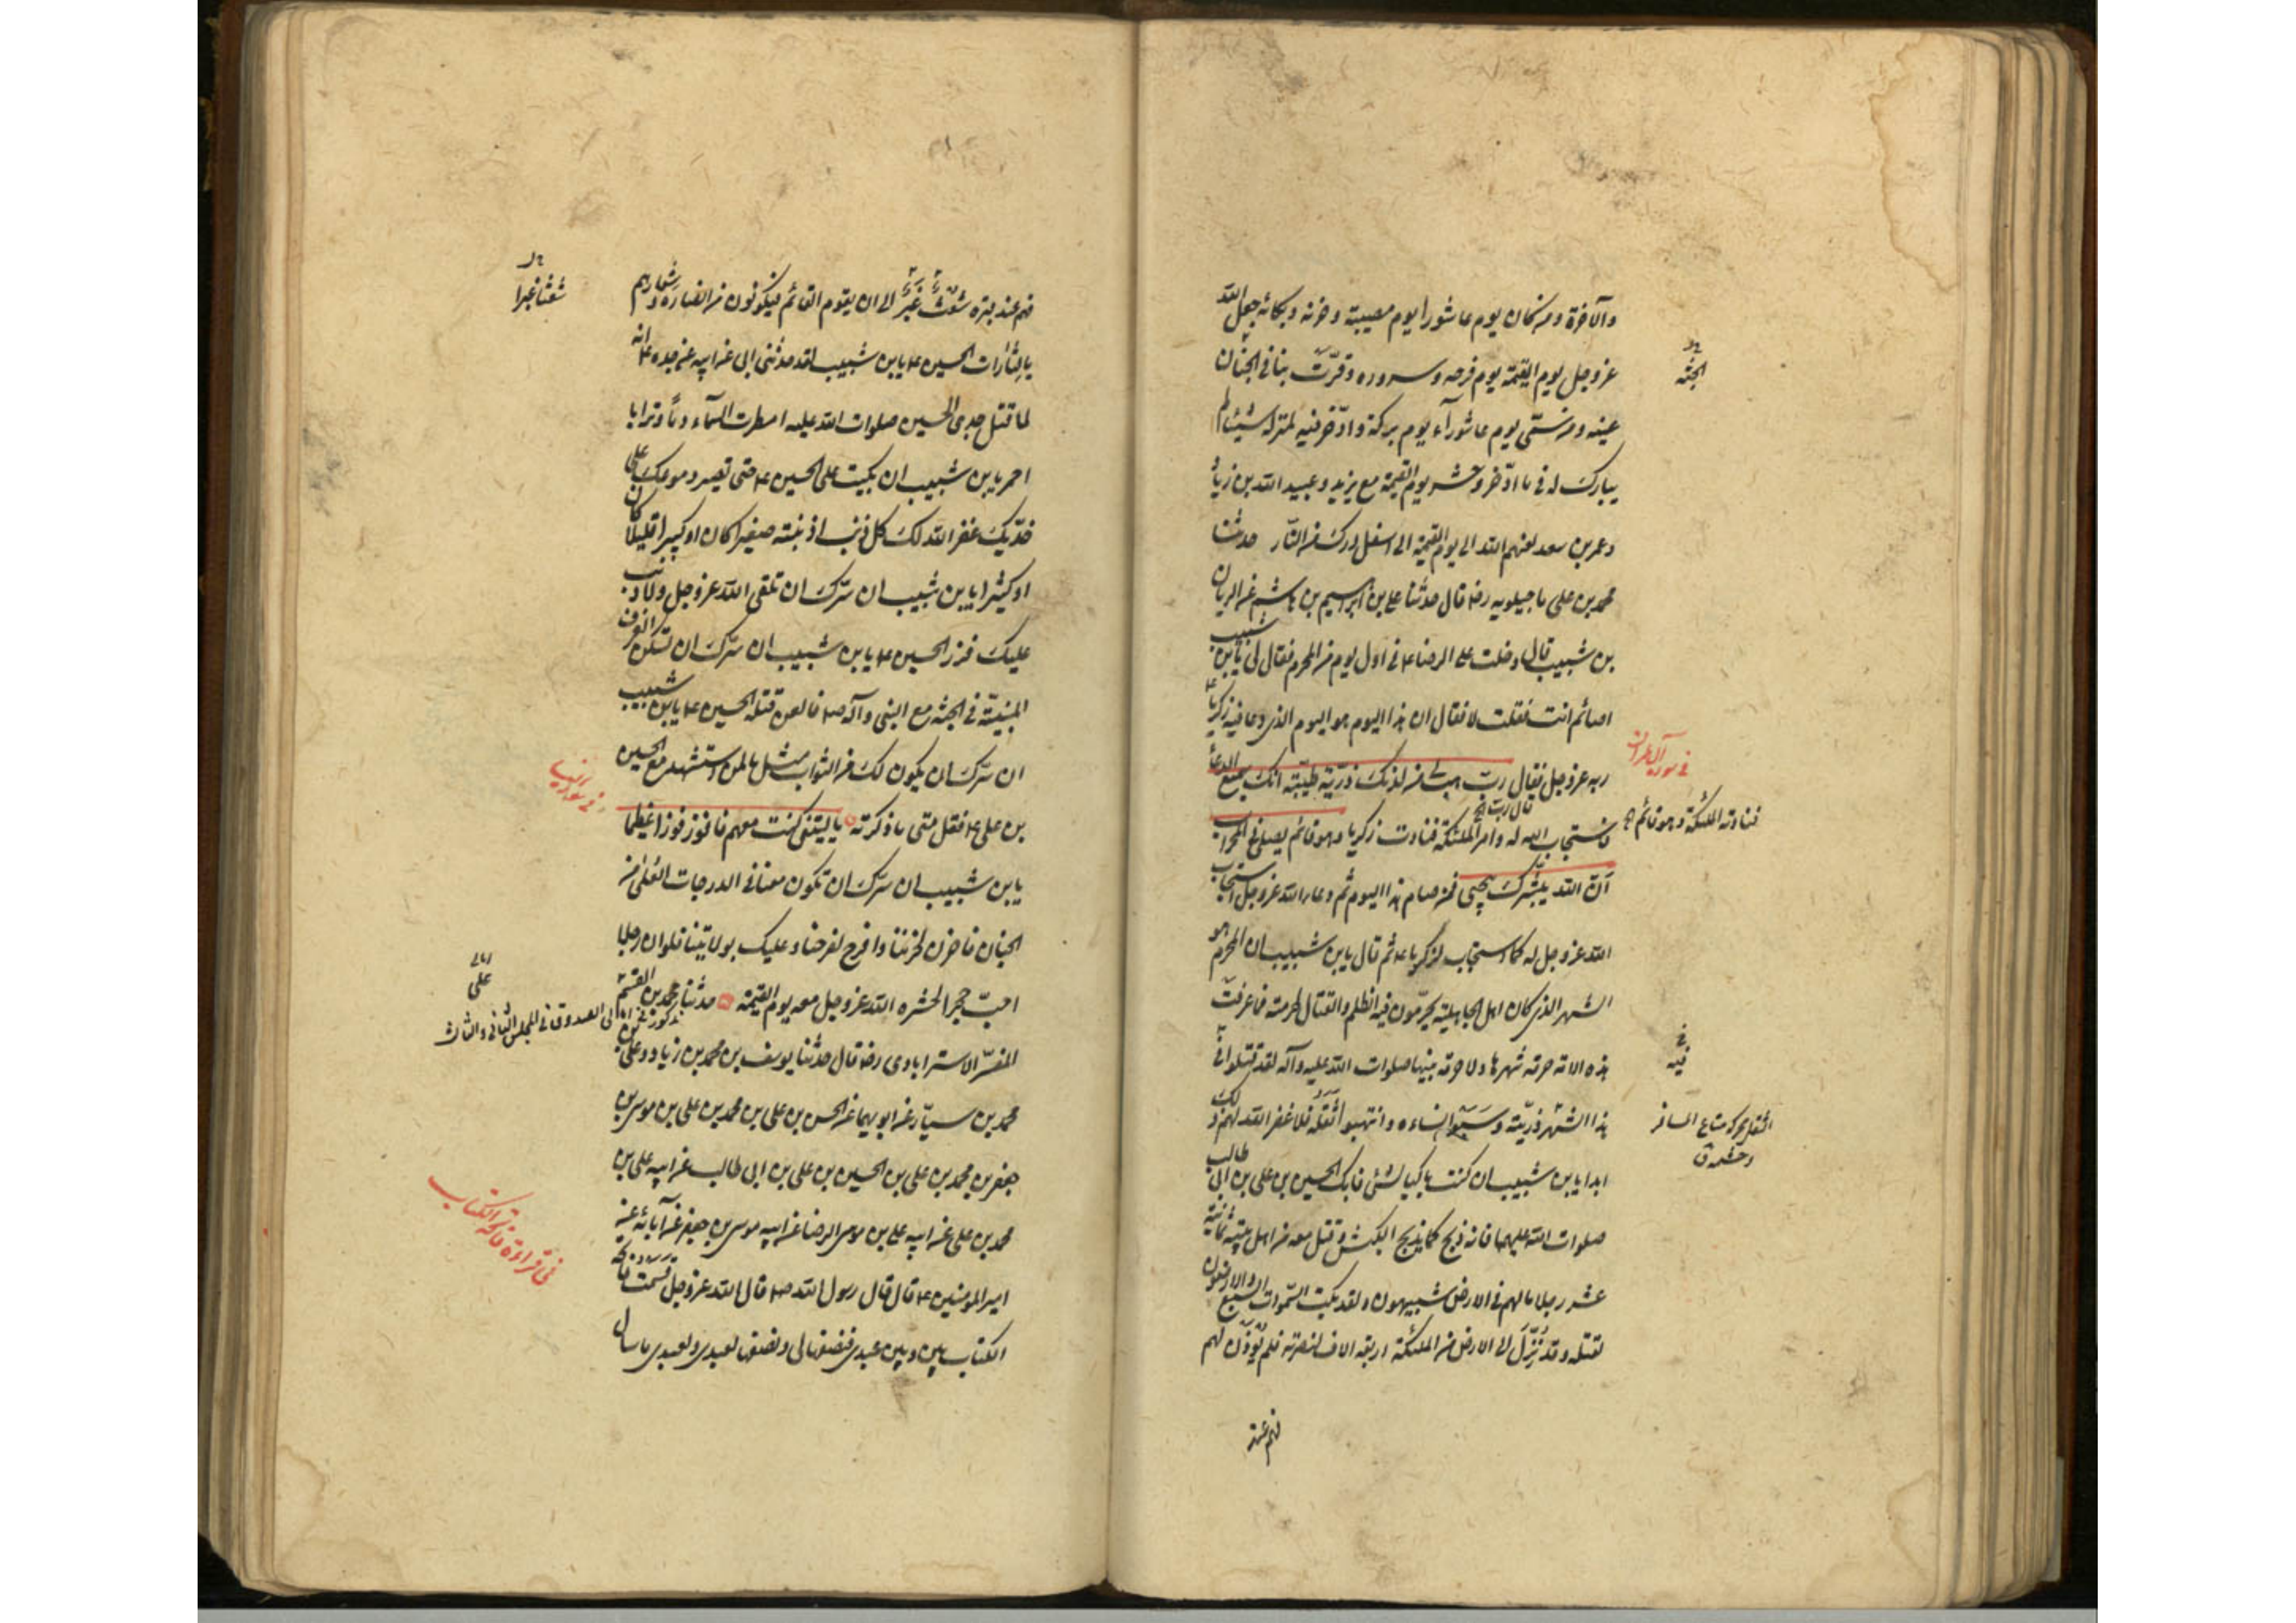 والآخرة ومن كان يوم عاشورا يوم مصيبته وحزنه وبكائه جعل الله
عزوجل يوم القيمة يوم فرحه وسروره وقرّت بنا في الجنان
عينه ومن سمّى يوم عاشوراء يوم بركة وادّخر فيه لمنزله شيئا لم
يبارك له في ما ادّخر وحشر يوم القيمة مع يزيد وعبيد الله بن زياد
وعمر بن سعد لعنهم الله الى يوم القيمة الى اسفل درك من النّار حدثنا
محمد بن علي ماجيلويه رضه قال حدثنا علي بن ابراهيم بن هاشم عن الريان
بن شبيب قال دخلت على الرضا ع في اول يوم من المحرم فقال لي يابن شبيب
اصائم انت فقلت لا فقال ان هذا اليوم هو اليوم الذي دعا فيه زكريا ع
ربه عزوجل فقال ربّ هب لي من لدنك ذرّية طيّبة انك سميع الدعاء
فاستجاب الله له وامر الملئكة فنادت زكريا وهو قائم يصلي في المحراب
قال رب
انّ الله يبشّرك بيحيى فمن صام هذا اليوم ثم دعا الله عزوجل استجاب
الله عزوجل له كما استجاب لزكريا ع ثم قال يابن شبيب ان المحرم هو
الشهر الذي كان اهل الجاهلية يحرّمون فيه الظلم والقتال لحرمته فما عرفت
هذه الامة حرمة شهرها ولا حرمة نبيها صلوات الله عليه وآله لقد قتلوا في
هذا الشهر ذريّته وسبوا نساءه وانتهبوا ثقله فلا غفر الله لهم ذلك
ابدا يابن شبيب ان كنت باكيا لشئ فابك الحسين بن علي بن ابي طالب
صلوات الله عليهما فانه ذبح كما يذبح الكبش وقتل معه من اهل بيته ثمانية
عشر رجلا ما لهم في الارض شبيهون ولقد بكت السّموات السبع والارضون
لقتله وقد نزل الى الارض من الملئكة اربعة الاف لنصرته فلم يؤذن لهم
فهم عند
الجنّة
في سورة آل عمران
فنادته الملئكة وهو قائم
فيه
الثقل محركة متاع المسافر
وحشمه ق
فهم عند قبره شعث غبر الى ان يقوم القائم فيكونون من انصاره وشعارهم
يا لثارات الحسين ع يابن شبيب لقد حدثني ابي عن ابيه عن جده ع انه
لما قتل جدي الحسين صلوات الله عليه امطرت السّماء دماً وترابا
احمر يابن شبيب ان بكيت على الحسين ع حتى تصير دموعك على
خدّيك غفر الله لك كل ذنب اذنبته صغيرا كان او كبيرا قليلا كان
او كثيرا يابن شبيب ان سرّك ان تلقى الله عزوجل ولا ذنب
عليك فزر الحسين ع يابن شبيب ان سرّك ان تسكن الغرف
المبنيّة في الجنّة مع النبي وآله ص فالعن قتلة الحسين ع يابن شبيب
ان سرّك ان يكون لك من الثواب مثل ما لمن استشهد مع الحسين
بن علي ع فقل متى ما ذكرته يا ليتني كنت معهم فافوز فوزا عظيما
يابن شبيب ان سرّك ان تكون معنا في الدرجات العلى من
الجنان فاحزن لحزننا وافرح لفرحنا وعليك بولايتنا فلو ان رجلا
احبّ حجرا لحشره الله عزوجل معه يوم القيمة حدثنا محمد بن القسم
المفسّر الاسترابادي رضه قال حدثنا يوسف بن محمد بن زياد وعلي بن
محمد بن سيّار عن ابويهما عن الحسن بن علي بن محمد بن علي بن موسى بن
جعفر بن محمد بن علي بن الحسين بن علي بن ابي طالب عن ابيه علي بن
محمد بن علي عن ابيه علي بن موسى الرضا عن ابيه موسى بن جعفر عن آبائه عن
امير المؤمنين ع قال قال رسول الله ص قال الله عزوجل قسمت فاتحة
الكتاب بيني وبين عبدي فنصفها لي ونصفها لعبدي ولعبدي ما سال
شعثا غبرا
في سورة النساء
علي
الصدوق في المجلس الثاني والثلث
في قراءة فاتحة الكتاب